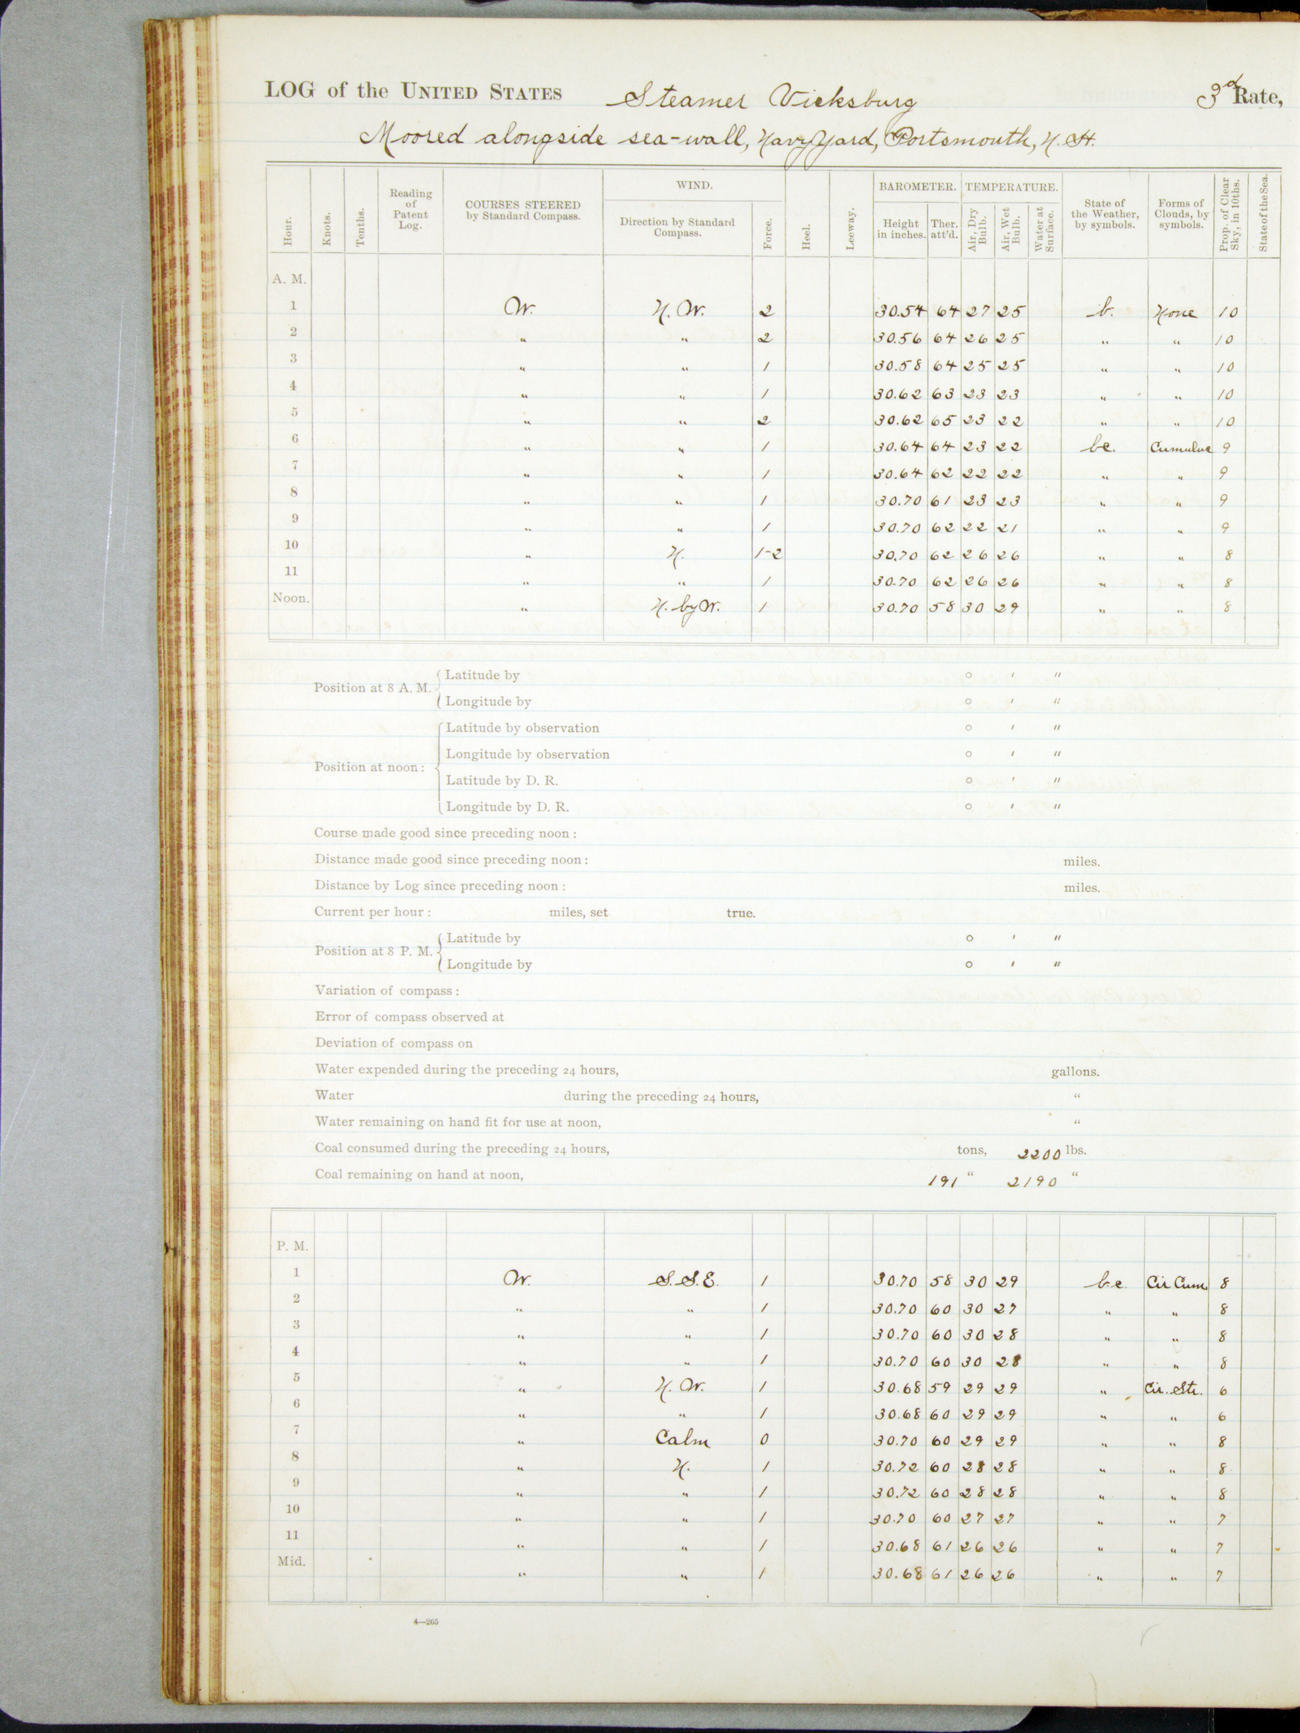 LOG of the UNITED STATES Steamer Vicksburg 3d Rate,
Moored alongside sea-wall, Navy Yard, Portsmouth, N. H.
Hour. Knots. Tenths. Reading of Patent Log. COURSES STEERED by Standard Compass. WIND. Direction by Standard Compass. Force. Heel. Leeway. BAROMETER. Height in inches. Ther. att'd. TEMPERATURE. Air, Dry Bulb. Air, Wet Bulb. Water at Surface. State of the Weather, by symbols. Forms of Clouds, by symbols. Prop. of Clear Sky, in 10ths. State of the Sea.
A. M.
1 W. N. W. 2 30.54 64 27 25 b. None 10
2 " " 2 30.56 64 26 25 " " 10
3 " " 1 30.58 64 25 25 " " 10
4 " " 1 30.62 63 23 23 " " 10
5 " " 2 30.62 65 23 22 " " 10
6 " " 1 30.64 64 23 22 bc. Cumulus 9
7 " " 1 30.64 62 22 22 " " 9
8 " " 1 30.70 61 23 23 " " 9
9 " " 1 30.70 62 22 21 " " 9
10 " N. 1-2 30.70 62 26 26 " " 8
11 " " 1 30.70 62 26 26 " " 8
Noon. " N. by W. 1 30.70 58 30 29 " " 8
Position at 8 A. M. Latitude by ° ′ ″
Longitude by ° ′ ″
Position at noon: Latitude by observation ° ′ ″
Longitude by observation ° ′ ″
Latitude by D. R. ° ′ ″
Longitude by D. R. ° ′ ″
Course made good since preceding noon:
Distance made good since preceding noon: miles.
Distance by Log since preceding noon: miles.
Current per hour: miles, set true.
Position at 8 P. M. Latitude by ° ′ ″
Longitude by ° ′ ″
Variation of compass:
Error of compass observed at
Deviation of compass on
Water expended during the preceding 24 hours, gallons.
Water during the preceding 24 hours, "
Water remaining on hand fit for use at noon, "
Coal consumed during the preceding 24 hours, tons, 2200 lbs.
Coal remaining on hand at noon, 191 " 2190 "
P. M.
1 W. S.S.E. 1 30.70 58 30 29 b.c. Cir Cum 8
2 " " 1 30.70 60 30 27 " " 8
3 " " 1 30.70 60 30 28 " " 8
4 " " 1 30.70 60 30 28 " " 8
5 " N. W. 1 30.68 59 29 29 " Cir. Str. 6
6 " " 1 30.68 60 29 29 " " 6
7 " Calm 0 30.70 60 29 29 " " 8
8 " N. 1 30.72 60 28 28 " " 8
9 " " 1 30.72 60 28 28 " " 8
10 " " 1 30.70 60 27 27 " " 7
11 " " 1 30.68 61 26 26 " " 7
Mid. " " 1 30.68 61 26 26 " " 7
4—265